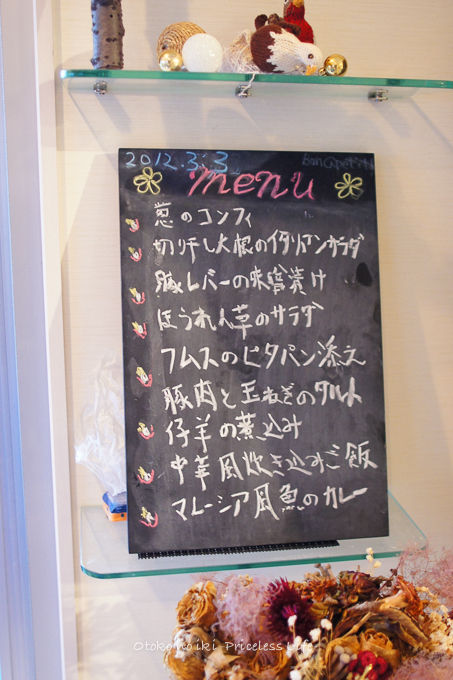 2012.3.3
Bon appétit
menu
葱のコンフィ
切り干し大根のイタリアンサラダ
豚レバーの味噌漬け
ほうれん草のサラダ
フムスのピタパン添え
豚肉と玉ねぎのタルト
仔羊の煮込み
中華風炊き込みご飯
マレーシア風魚のカレー
Otokomoiki Priceless Life